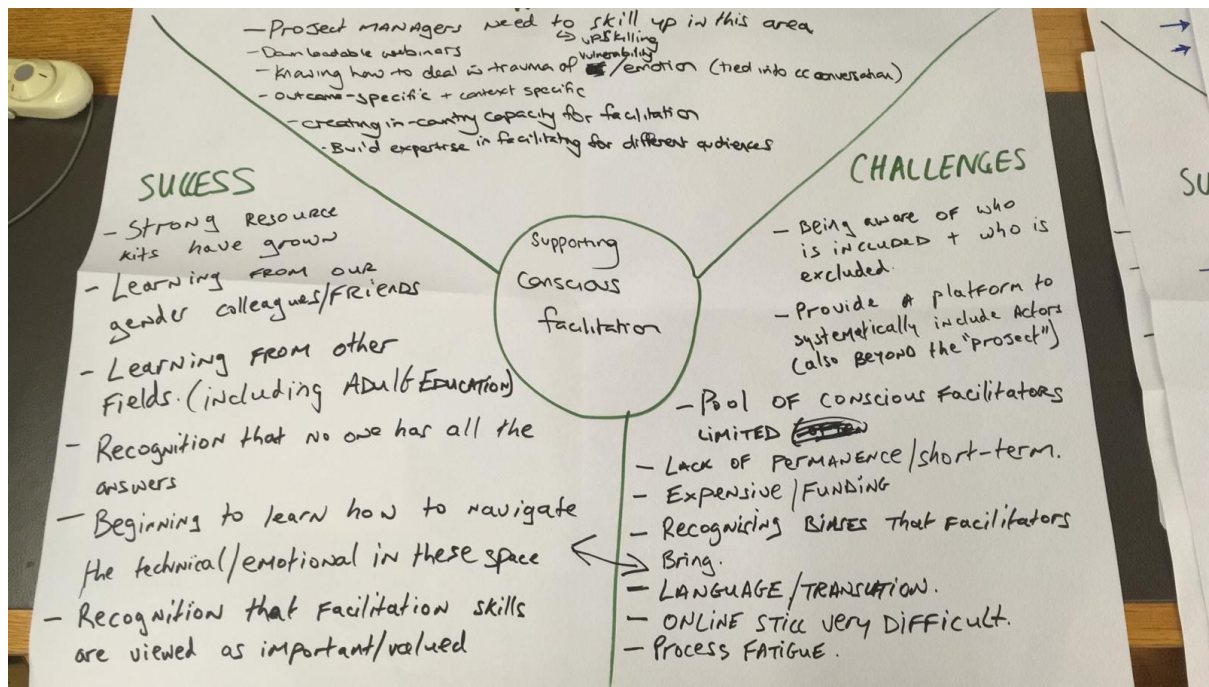 - Project MANAGERS need to skill up in this area
↳ upskilling
- Downloadable webinars
vulnerability
- Knowing how to deal w trauma of /emotion (tied into cc conversation)
- outcome-specific + context specific
- creating in-country capacity for facilitation
- Build expertise in facilitating for different audiences
SUCCESS
- Strong Resource
kits have grown
- Learning from our
gender colleagues/FRIENDS
- Learning from other
fields. (including ADULT EDUCATION)
- Recognition that no one has all the
answers
- Beginning to learn how to navigate
the technical/emotional in these space
- Recognition that facilitation skills
are viewed as important/valued
Supporting
Conscious
facilitation
CHALLENGES
- Being aware of who
is included + who is
excluded.
- Provide A platform to
systematically include Actors
(also Beyond the "project")
- Pool of conscious facilitators
LIMITED
- Lack of permanence/short-term.
- Expensive/Funding
- Recognising BIASES That facilitators
Bring.
- LANGUAGE/TRANSLATION.
- ONLINE STILL very DIFFICULT.
- Process FATIGUE.
SU